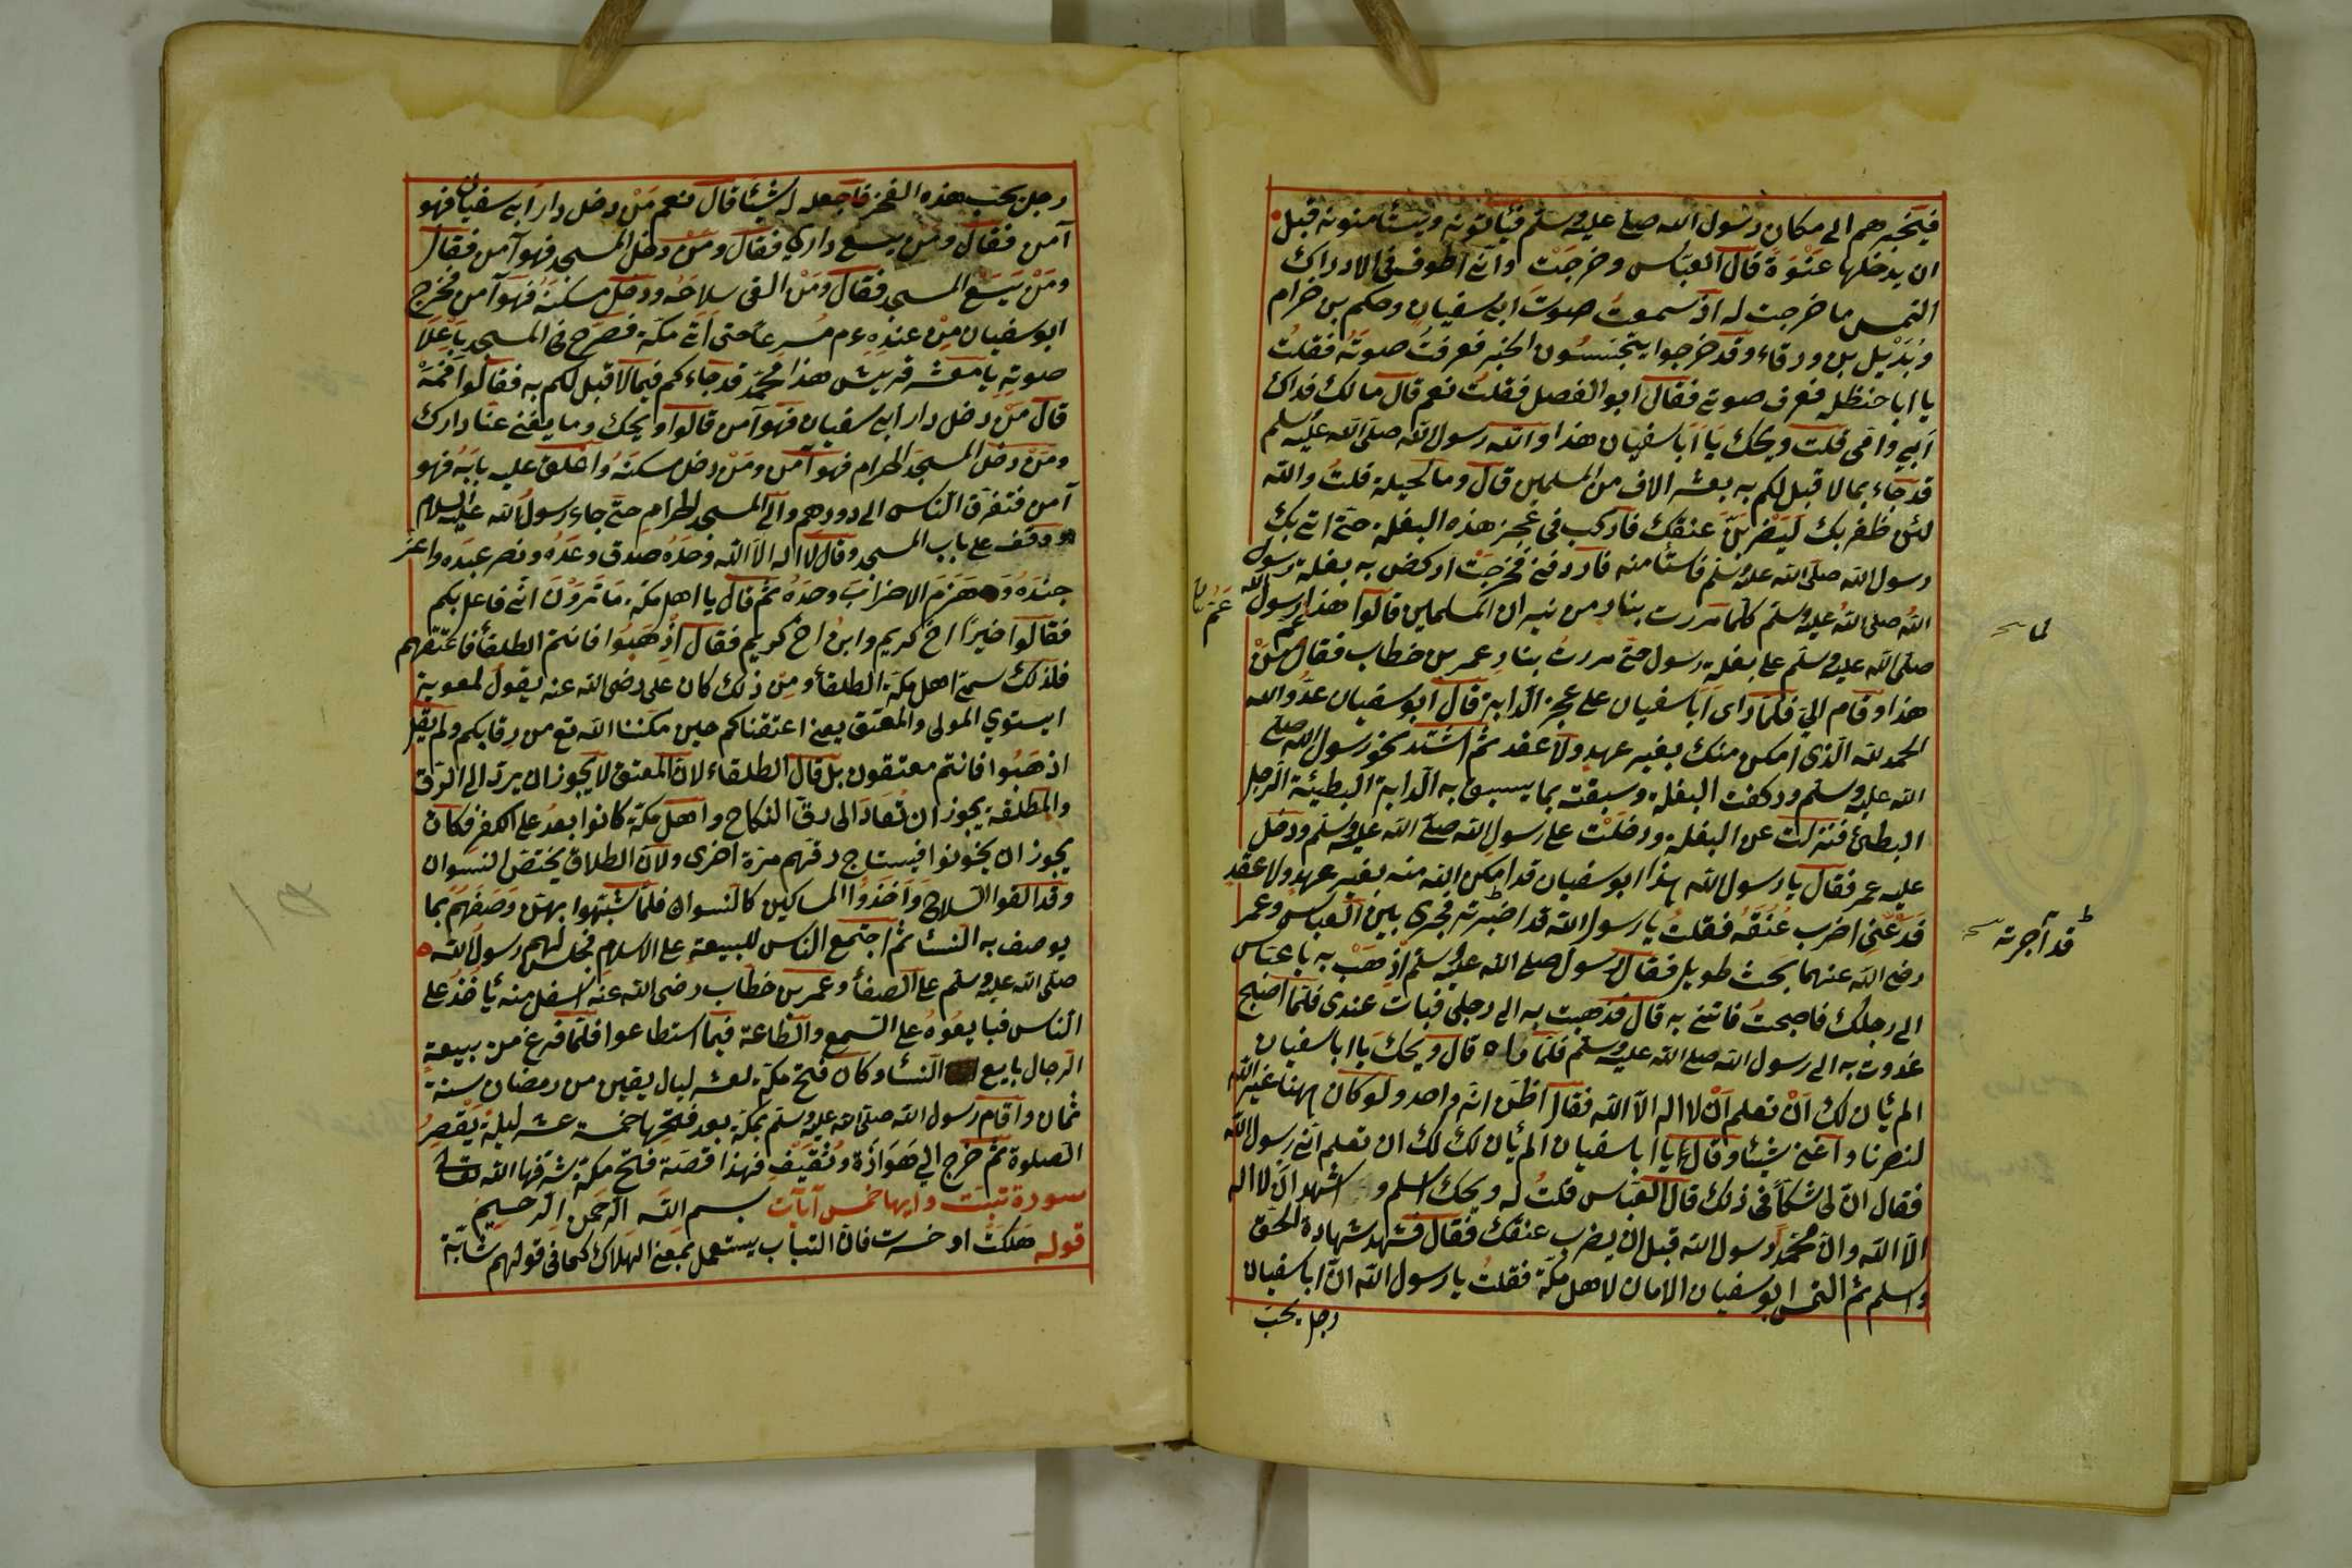 فيخبرهم الى مكان رسول الله صلى عليه وسلم فيأتونه ويستأمنونه قبل
ان يدخلها عَنْوَة قال العبّاس وخرجَتْ وانّى اطوف فى الاراك
التمس ما خرجت له اذ سمعتُ صوتَ ابى سفيان وحكم بن حزام
وبُدَيْل بن ورقاء وقد خرجوا يتجسسُون الخبر فعرفتُ صوتَه فقلتُ
يا ابا حنظله فعرف صوتى فقال ابو الفضل فقلت نعم قال مالك فداك
ابي وامّى قلت ويحك يا ابا سفيان هذا والله رسول الله صلى الله عليه وسلم
قد جاء بما لا قبل لكم به بعشرة الاف من المسلمين قال وما الحيلة قلتُ والله
لئن ظفر بك لَيَضْرِبَنَّ عنقك فاركب فى عجز هذه البغلة حتى اتى بك
رسول الله صلى الله عليه وسلم فاستأمنه فاردفنى فخرجت اركض به بغلة رسول
الله صلى الله عليه وسلم كلما مررت بنار من نيران المسلمين قالوا هذا عم رسول الله
صلى الله عليه وسلم على بغلة رسول حتى مررتُ بنار عمر بن خطاب فقال مَنْ
هذا وقام الىّ فلمّا راى ابا سفيان على عجز الدابة قال ابو سفيان عدُوّ الله
الحمد لله الّذى امكن منك بغير عهدٍ ولا عقد ثمّ اشتد نحو رسول الله صلى
الله عليه وسلم وركضت البغلة وسبقته بما يسبق به الدابة البطيئة الرجل
البطئ فنزلت عن البغلة ودخلَتْ على رسول الله صلى الله عليه وسلم ودخل
عليه عمر فقال يا رسول الله هذا ابو سفيان قد امكن الله منه بغير عهدٍ ولا عقدٍ
فدَعْنى اضرب عُنُقَهُ فقلتُ يا رسول الله قد اخبرته فجرى بين العباس وعمر
رضى الله عنهما بحث طويل فقال رسول صلى الله عليه وسلم اذهَبْ به يا عباس
الى رحلك فاصبحتُ فاتنى به قال فذهبت به الى رحلى فبات عندى فلمّا اصبح
غدوت به الى رسول الله صلى الله عليه وسلم فلمّا راه قال ويحك يا ابا سفيان
الم يأن لك اَنْ تعلم اَنْ لا اله الا الله فقال اظنّ انّه واحد ولو كان ههنا غير الله
لنصرنا واغنى شيئا وقال يا ابا سفيان الم يأن لك لك ان تعلم انّى رسول الله
فقال انّ لى شكّا فى ذلك قال العبّاس قلتُ له ويحك اسلم و اشهد ان لا اله
الا الله وانّ محمّدا رسول الله قبل ان يضرب عنقك فقال فشهد شهادة الحق
واسلم ثم التمس ابو سفيان الامان لاهل مكّة فقلتُ يا رسول الله انّ ابا سفيان
رجل يحبّ
لما
قد آجرته
عم
رجل يحبّ هذه الفخر فاجعله له شيئا قال نعم مَنْ دخل دار ابى سفيان فهو
آمن فقال ومن يسع داري فقال ومَنْ دخل المسجد فهو آمن فقال
ومَنْ يَسَع المسجد فقال ومَنْ القى سلاحَه ودخل مسكنَهُ فهوَ آمن فخرج
ابو سفيان مِنْ عنده ءم مُسرعًا حتى اتى مكّة فصَرَخ فى المسجد باَعْلَا
صوتِهِ يا معشر قريش هذا محمّد قد جاءكم فيما لا قبل لكم به فقالوا فَمَهْ
قال مَنْ دخل دار ابى سفيان فهو آمن قالوا ويحك وما يغنى عنّا دارك
ومَنْ دخل المسجد الحرام فهو آمن ومَنْ دخل مسكنَهُ واغلق عليه بابَهُ فهو
آمن فتفرّق الناس الى دورهم والى المسجد الحرام حتّى جاء رسولُ الله عليه السلام
ووقف على باب المسجد وقال لا اله الا الله وحدَهُ صدق وعْدَهُ ونصر عبدَه واعزّ
جندَهُ وَهَزَمَ الاحزابَ وحدَهُ ثم قال يا اهل مكّة ما تَرَوْنَ انّى فاعل بكم
فقالوا خيرًا اخٌ كريم وابنُ اخٍ كريم فقال اِذهَبُوا فانتم الطلقأ فاعتقهم
فلذلك سمّى اهل مكّة الطلقأ ومِن ذلك كان على رضى الله عنه يقول لمعوية
ايستوي المولى والمعتق يعنى اعتقناكم حين مكننا الله تع من رقابكم ولم يقل
اذهَبُوا فانتم معتقون بل قال الطلقاء لانّ المعتق لا يجوز ان يردّ الى الرّق
والمطلقة يجوز ان تُعَادَ الى رقّ النكاح واهل مكّة كانوا بعدُ على الكفر فكان
يجوز ان يخونوا فيستباح رقّهم مرّة اخرى ولانّ الطلاق يختصّ النسوان
وقد القوا السّلاح وَاَخَذُوا المساكين كالنسوان فلمّا شبّهوا بهنّ وَصَفَهُمْ بما
يوصف به النّسأ ثم اجتمع الناس للبيعة على الاسلام فجلس لهم رسول الله
صلى الله عليه وسلم على الصفأ وعمر بن خطاب رضى الله عنه اسفل منه يأخُذُ على
الناس فبايعُوهُ على السّمع والطّاعة فيما استطاعوا فلمّا فرغ من بيعة
الرجال بايع النّسأ وكان فتح مكّة لعشر ليال بقين من رمضان سنة
ثمان واقام رسول الله صلى الله عليه وسلم بمكّة بعد فتحها خمسة عشر ليلة يَقْصِرُ
الصلوة ثمّ خرج الي هَوَازَة وثقيفٍ فهذا قصّة فتح مكّة شرّفها الله تعالى
سورة تبّت وايها خمس آيات بسم الله الرحمن الرحيم
قوله هَلَكَتْ او خسرت فانّ التباب يستعمل بمعنى الهلاك كما فى قولهم شابّة